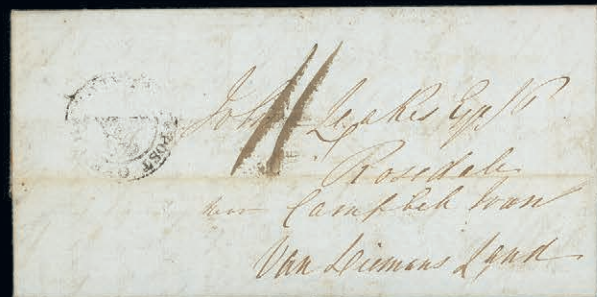 11
John Leakes Esqr
Rosedale
near Campbell Town
Van Diemans Land
POST